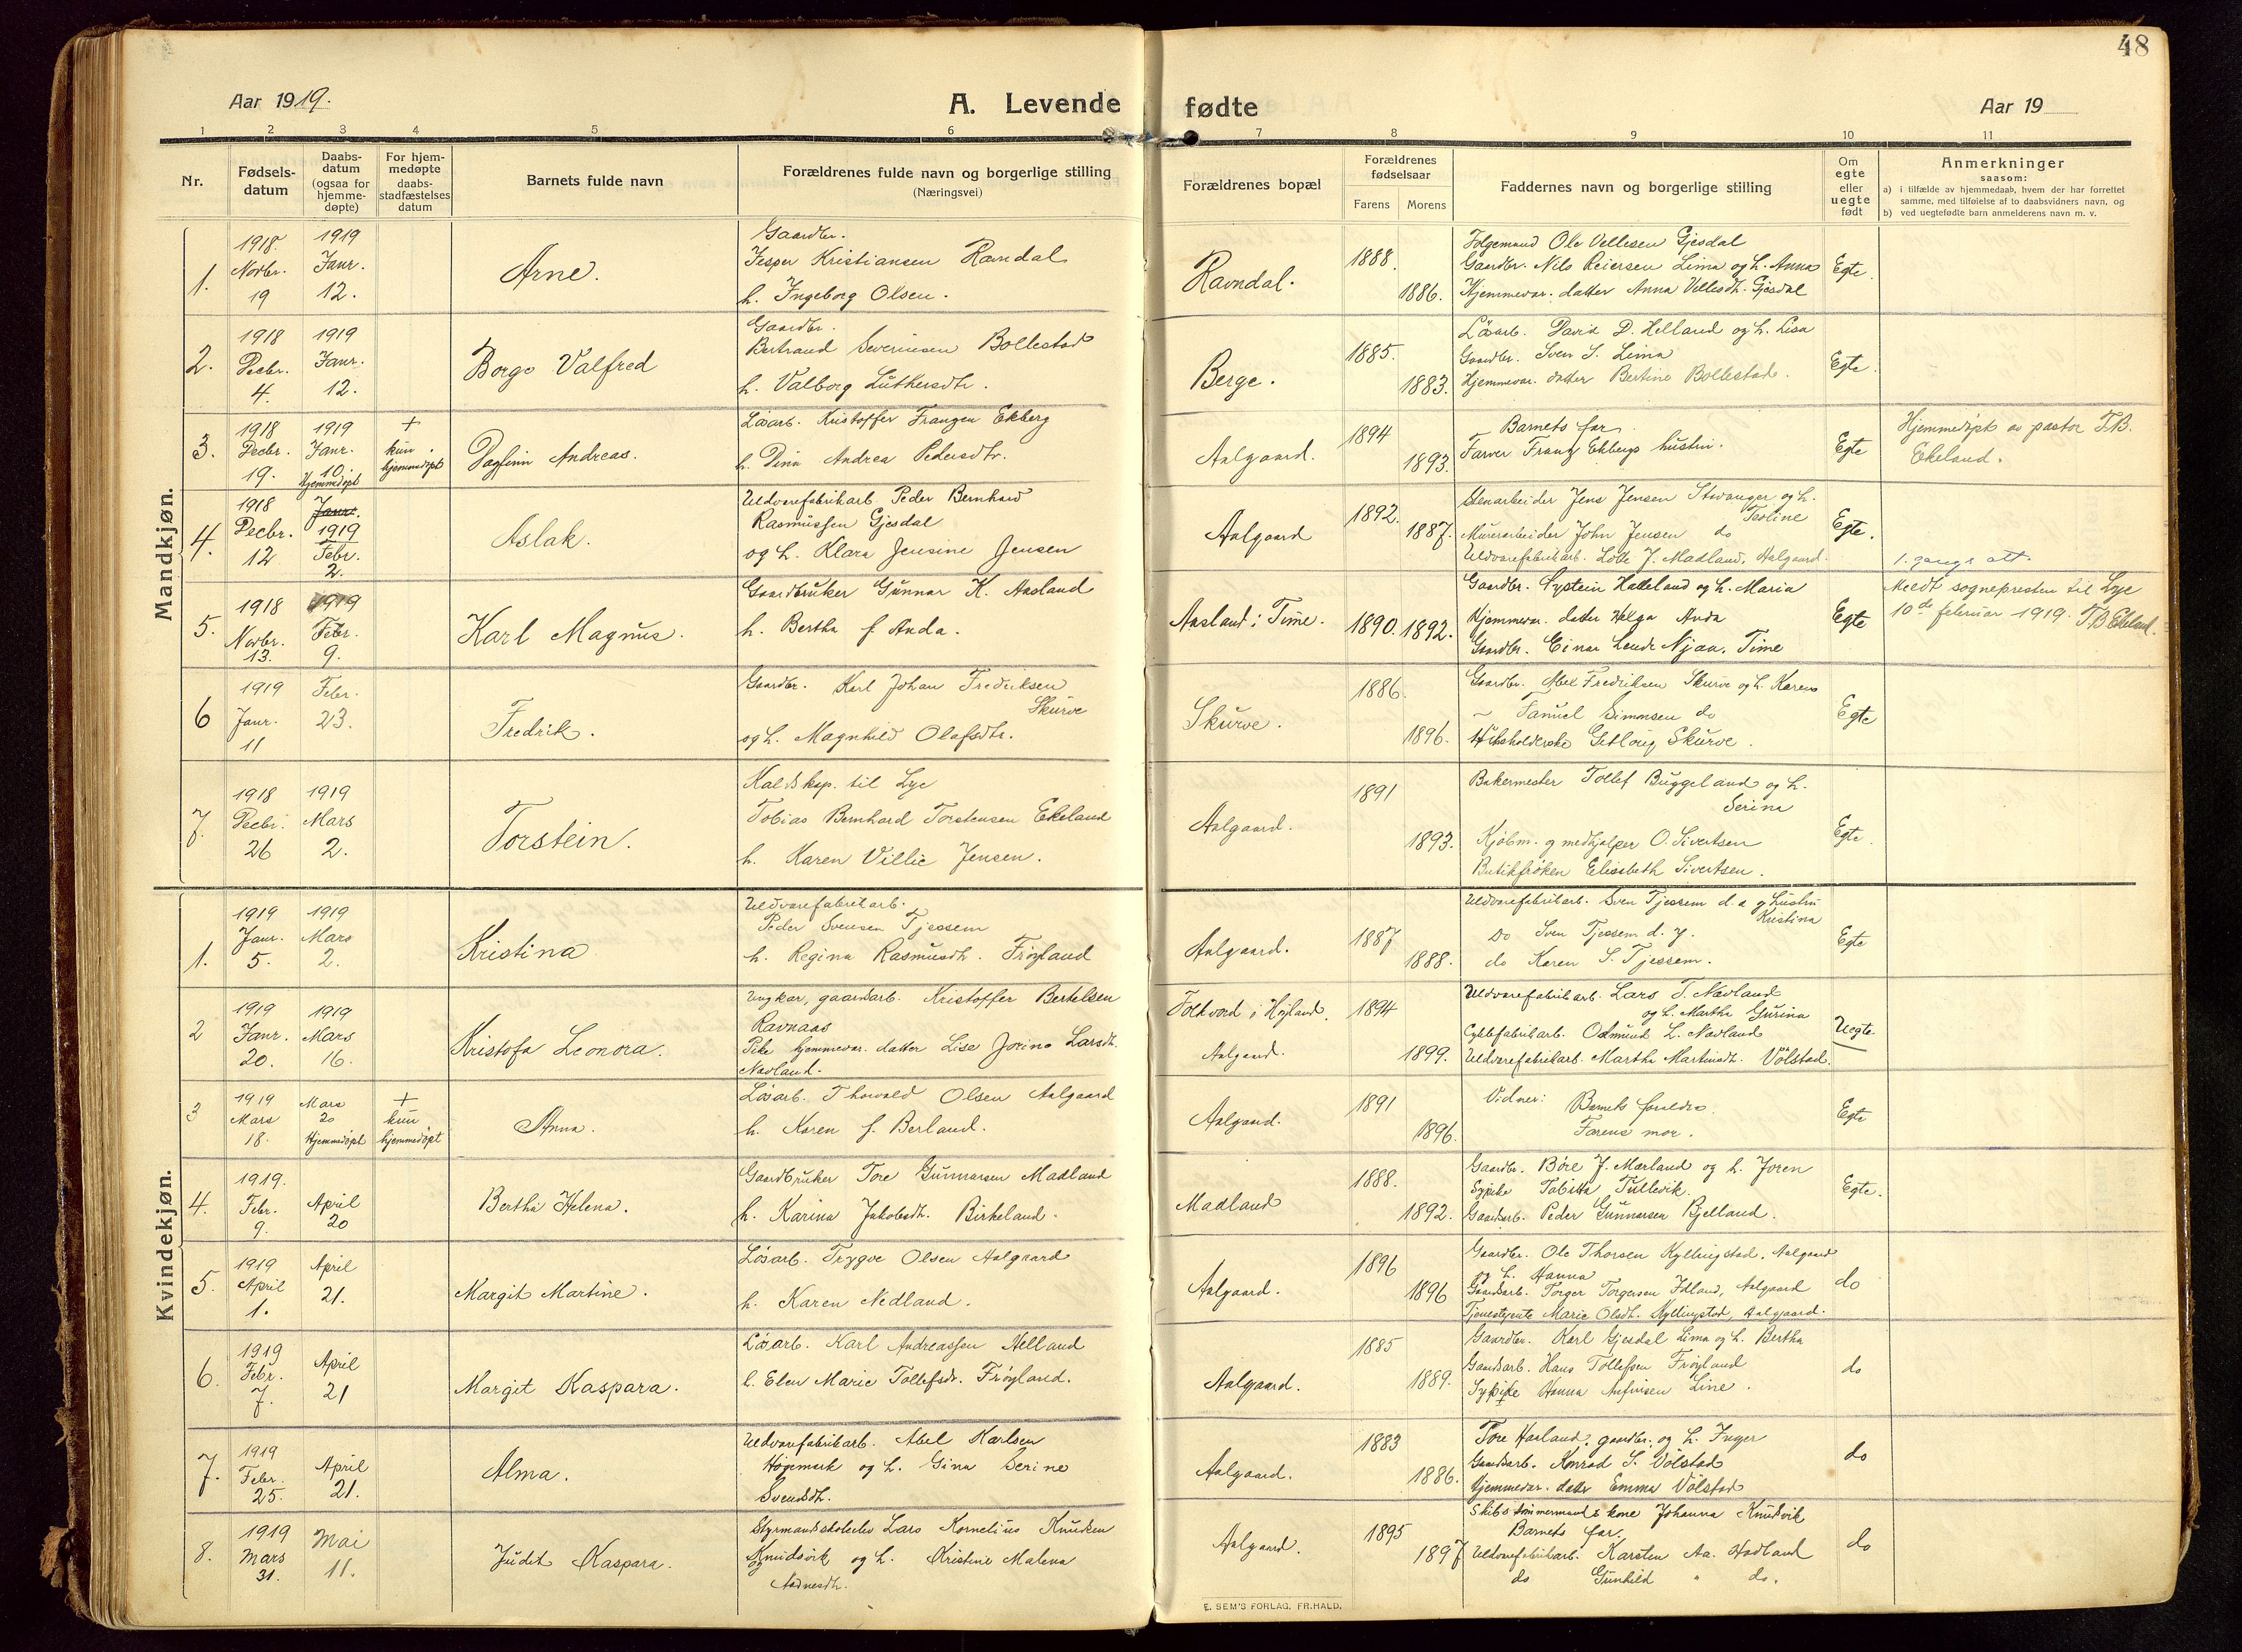 48
Aar 1919.
A. Levende fødte
Aar 19
1 2 3 4 5 6 7 8 9 10 11
Nr.
Fødsels-
datum
Daabs-
datum
(ogsaa for
hjemme-
døpte)
For hjem-
medøpte
daabs-
stadfæstelses
datum
Barnets fulde navn
Forældrenes fulde navn og borgerlige stilling
(Næringsvei)
Forældrenes bopæl
Forældrenes
fødselsaar
Farens Morens
Faddernes navn og borgerlige stilling
Om
egte
eller
uegte
født
Anmerkninger
saasom:
a) i tilfælde av hjemmedaab, hvem der har forrettet
samme, med tilføielse af to daabsvidners navn, og
b) ved uegtefødte barn anmelderens navn m. v.
Mandkjøn.
1.
1918.
Novbr.
19
1919
Janr.
12.
Arne.
Gaardbr.
Jesper Kristiansen Ravndal
h. Ingeborg Olsen.
Ravndal.
1888.
1886.
Folgemand Ole Vellesen Gjesdal
Gaardbr. Nils Reiersen Lima og h. Anna
Hjemmevær. datter Anna Vellesdt. Gjesdal
Egte
2.
1918
Decbr.
4.
1919
Janr.
12.
Borge Valfred
Gaardbr.
Bertrand Severinsen Bollestad
h. Valborg Luthersdtr.
Berge.
1885.
1883.
Løsarb. David D. Helland og h. Lisa
Gaardbr. Sven S. Lima
Hjemmevær. datter Bertine Bollestad.
Egte.
3.
1918
Decbr.
19.
1919
Janr.
10.
Hjemmedøpt
+
kun
hjemmedøpt
Dagfinn Andreas.
Løsarb. Kristoffer Frangen Ekberg
h. Dina Andrea Pedersdtr.
Aalgaard.
1894
1893.
Barnets far
Farver Frang Ekbergs hustru.
Egte
Hjemmedøpt av pastor T.B.
Ekeland.
4.
1918
Decbr.
12
Janr.
1919
Febr.
2.
Aslak.
Uldvarefabrikarb. Peder Bernhard
Rasmussen Gjesdal
og h. Klara Jensine Jensen
Aalgaard
1892.
1887.
Stenarbeider Jens Jensen Stavanger og h.
Teoline
Murerarbeider John Jensen do
Uldvarefabrikarb. Lotte J. Madland, Aalgaard.
Egte.
5.
1918
Novbr.
13.
1919
Febr.
9.
Karl Magnus.
Gaardbruker Gunnar K. Aasland
h. Bertha f. Anda.
Aasland i Time.
1890.
1892.
Gaardbr. Øystein Halleland og h. Maria
Hjemmevær. datter Helga Anda
Gaardbr. Einar Lende Njaa, Time
Egte
1. gangs att.
Meldt sognepresten til Lye
10de februar 1919. T.B. Ekeland.
6
1919
Janr.
11
Febr.
23.
Fredrik.
Gaardbr. Karl Johan Fredriksen
Skurve
og h. Magnhild Olafsdtr.
Skurve.
1886.
1896.
Gaardbr. Abel Fredriksen Skurve og h. Karen
~ Samuel Simonsen do
Husholderske Gitlaug Skurve.
Egte
7.
1918
Decbr.
26
1919
Mars
2.
Torstein.
Kaldskap. til Lye
Tobias Bernhard Torstensen Ekeland
h. Karen Villie Jensen.
Aalgaard.
1891
1893.
Bakermester Tollef Buggeland og h.
Serina
Kjøbm. og medhjelper O. Sivertsen
Butikfrøken Elisabeth Sivertsen.
Egte
Kvindekjøn.
1.
1919
Janr.
5.
1919
Mars
2.
Kristina
Uldvarefabrikarb.
Peder Svensen Tjessem
h. Regina Rasmusdt. Frøyland
Aalgaard.
1887
1888.
Uldvarefabrikarb. Sven Tjessem d. e. og hustru
Kristina
do Sven Tjessem d. y.
do Karen S. Tjessem.
Egte
2
1919
Janr.
20.
1919
Mars
16.
Kristofa Leonora.
Ungkar, gaardsarb. Kristoffer Bertelsen
Ravnaas
Pike hjemmevær. datter Lise Jorine Larsdt.
Navland.
Folkvord i Høyland.
Aalgaard.
1894
1899.
Uldvarefabrikarb. Lars T. Navland
og h. Martha Gurina
Cyklefabrikarb. Odmund L. Navland
Uldvarefabrikarb. Martha Martinsdt. Vølstad.
Uegte
3
1919
Mars
18.
Mars
20
Hjemmedøpt
+
kun
hjemmedøpt
Anna.
Løsarb. Thorvald Olsen Aalgaard
h. Karen f. Berland.
Aalgaard.
1891
1896.
Vidner: Barnets forældre.
Farens mor.
Egte
4.
1919.
Febr.
9.
April
20
Bertha Helena.
Gaardbruker Tore Gunnarsen Madland
h. Karina Jakobsdt. Birkeland.
Madland
1888.
1892.
Gaardbr. Børe J. Marland og h. Joren
Sypike Tabitta Tullevik.
Gaardsarb. Peder Gunnarsen Bjelland.
Egte.
5.
1919
April
1.
April
21.
Margit Martine.
Løsarb. Trygve Olsen Aalgaard
h. Karen Nedland.
Aalgaard.
1896
1896
Gaardbr. Ole Thorsen Kyllingstad, Aalgaard
og h. Hanna
Gaardsarb. Torger Torgersen Idland, Aalgaard
Tjenestejente Marie Olsdt. Kyllingstad, Aalgaard.
do
6.
1919
Febr.
7.
April
21
Margit Kaspara.
Løsarb. Karl Andreassen Helland
h. Elen Marie Tollefsdr. Frøyland.
Aalgaard.
1885
1889.
Gaardbr. Karl Gjesdal Lima og h. Bertha
Gaardsarb. Hans Tollefsen Frøyland
Sypike Hanna Line.
do
7.
1919
Febr.
25.
April
21.
Alma.
Uldvarefabrikarb. Abel Karlsen
Høgemark og h. Gina Serine
Svendsdt.
Aalgaard.
1883
1886.
Tore Harland, gaardbr. og h. Inger
Gaardsarb. Konrad S. Vølstad
Hjemmevær. dattr Emma Vølstad
do
8.
1919
Mars
31.
Mai
11.
Judet Kaspara.
Styrmandsskoleelev Lars Kornelius Knudsen
Knudsvik og h. Kristine Malena
Aadnesdt.
Aalgaard.
1895
1897
Skibstømmermands kone Johanna Knutvik
Barnets far.
Uldvarefabrikarb. Karsten Aa. Hadland
do Gunhild " do.
do
E. SEM'S FORLAG, FR.HALD.